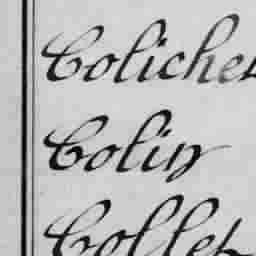 Colichet
Colin
Collet